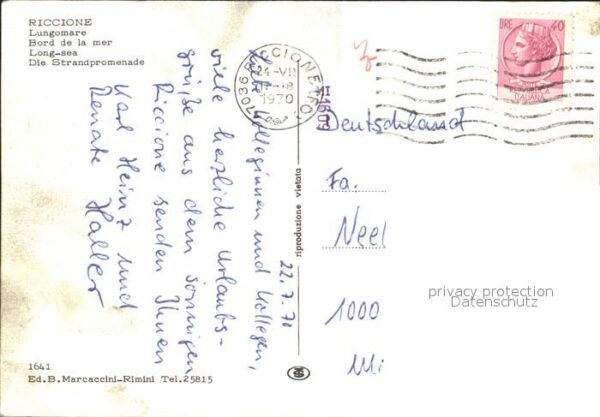 RICCIONE
Lungomare
Bord de la mer
Long-sea
Die Strandpromenade
LIRE 40
24-VII
1970
1609
22.7.70
Liebe Kolleginnen und Kollegen,
viele herzliche Urlaubs-
grüße aus dem sonnigen
Riccione senden Ihnen
Karl Heinz und
Renate Haller
riproduzione vietata
Deutschland
Fa.
Neel
1000
privacy protection
Datenschutz
1641
Ed.B.Marcaccini-Rimini Tel.25815